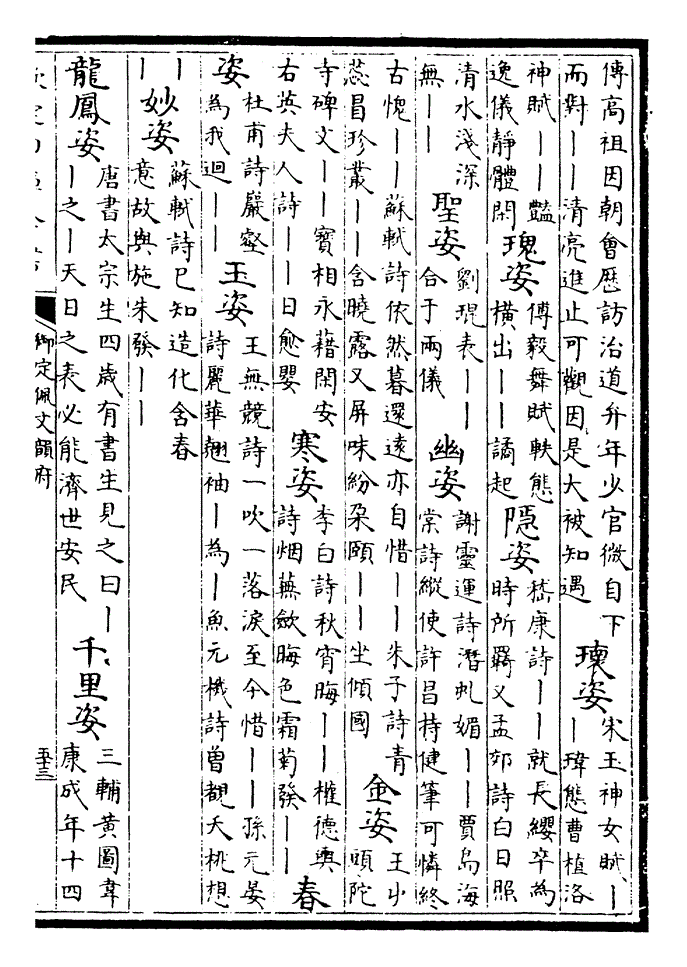 傳高祖因朝會歷訪治道弁年少官微自下
而對丨丨清亮進止可觀因是大被知遇
瓌姿
宋玉神女賦丨
丨瑋態曹植洛
神賦丨丨豔
逸儀靜體閑
瑰姿
傅毅舞賦軼態
橫出丨丨譎起
隱姿
嵇康詩丨丨就長纓卒為
時所羇又孟郊詩白日照
清水淺深
無丨丨
聖姿
劉琨表丨丨
合于兩儀
幽姿
謝靈運詩潛虬媚丨丨賈島海
棠詩縱使許昌持健筆可憐終
古愧丨丨蘇軾詩依然暮還遠亦自惜丨丨朱子詩青
蕊冒珍叢丨丨含曉露又屏咮紛朶頤丨丨坐傾國
金姿
王屮
頭陀
寺碑文丨丨寶相永藉閑安
右英夫人詩丨丨日愈嬰
寒姿
李白詩秋宵晦丨丨權德輿
詩烟蕪斂晦色霜菊發丨丨
春
姿
杜甫詩巖壑
為我迴丨丨
玉姿
王無競詩一吹一落淚至今惜丨丨孫元晏
詩麗華翹袖丨為丨魚元機詩曾覩夭桃想
丨
丨
妙姿
蘇軾詩已知造化含春
意故與施朱發丨丨
龍鳳姿
唐書太宗生四歲有書生見之曰丨
丨之丨天日之表必能濟世安民
千里姿
三輔黃圖韋
康成年十四
御定佩文韻府
五三